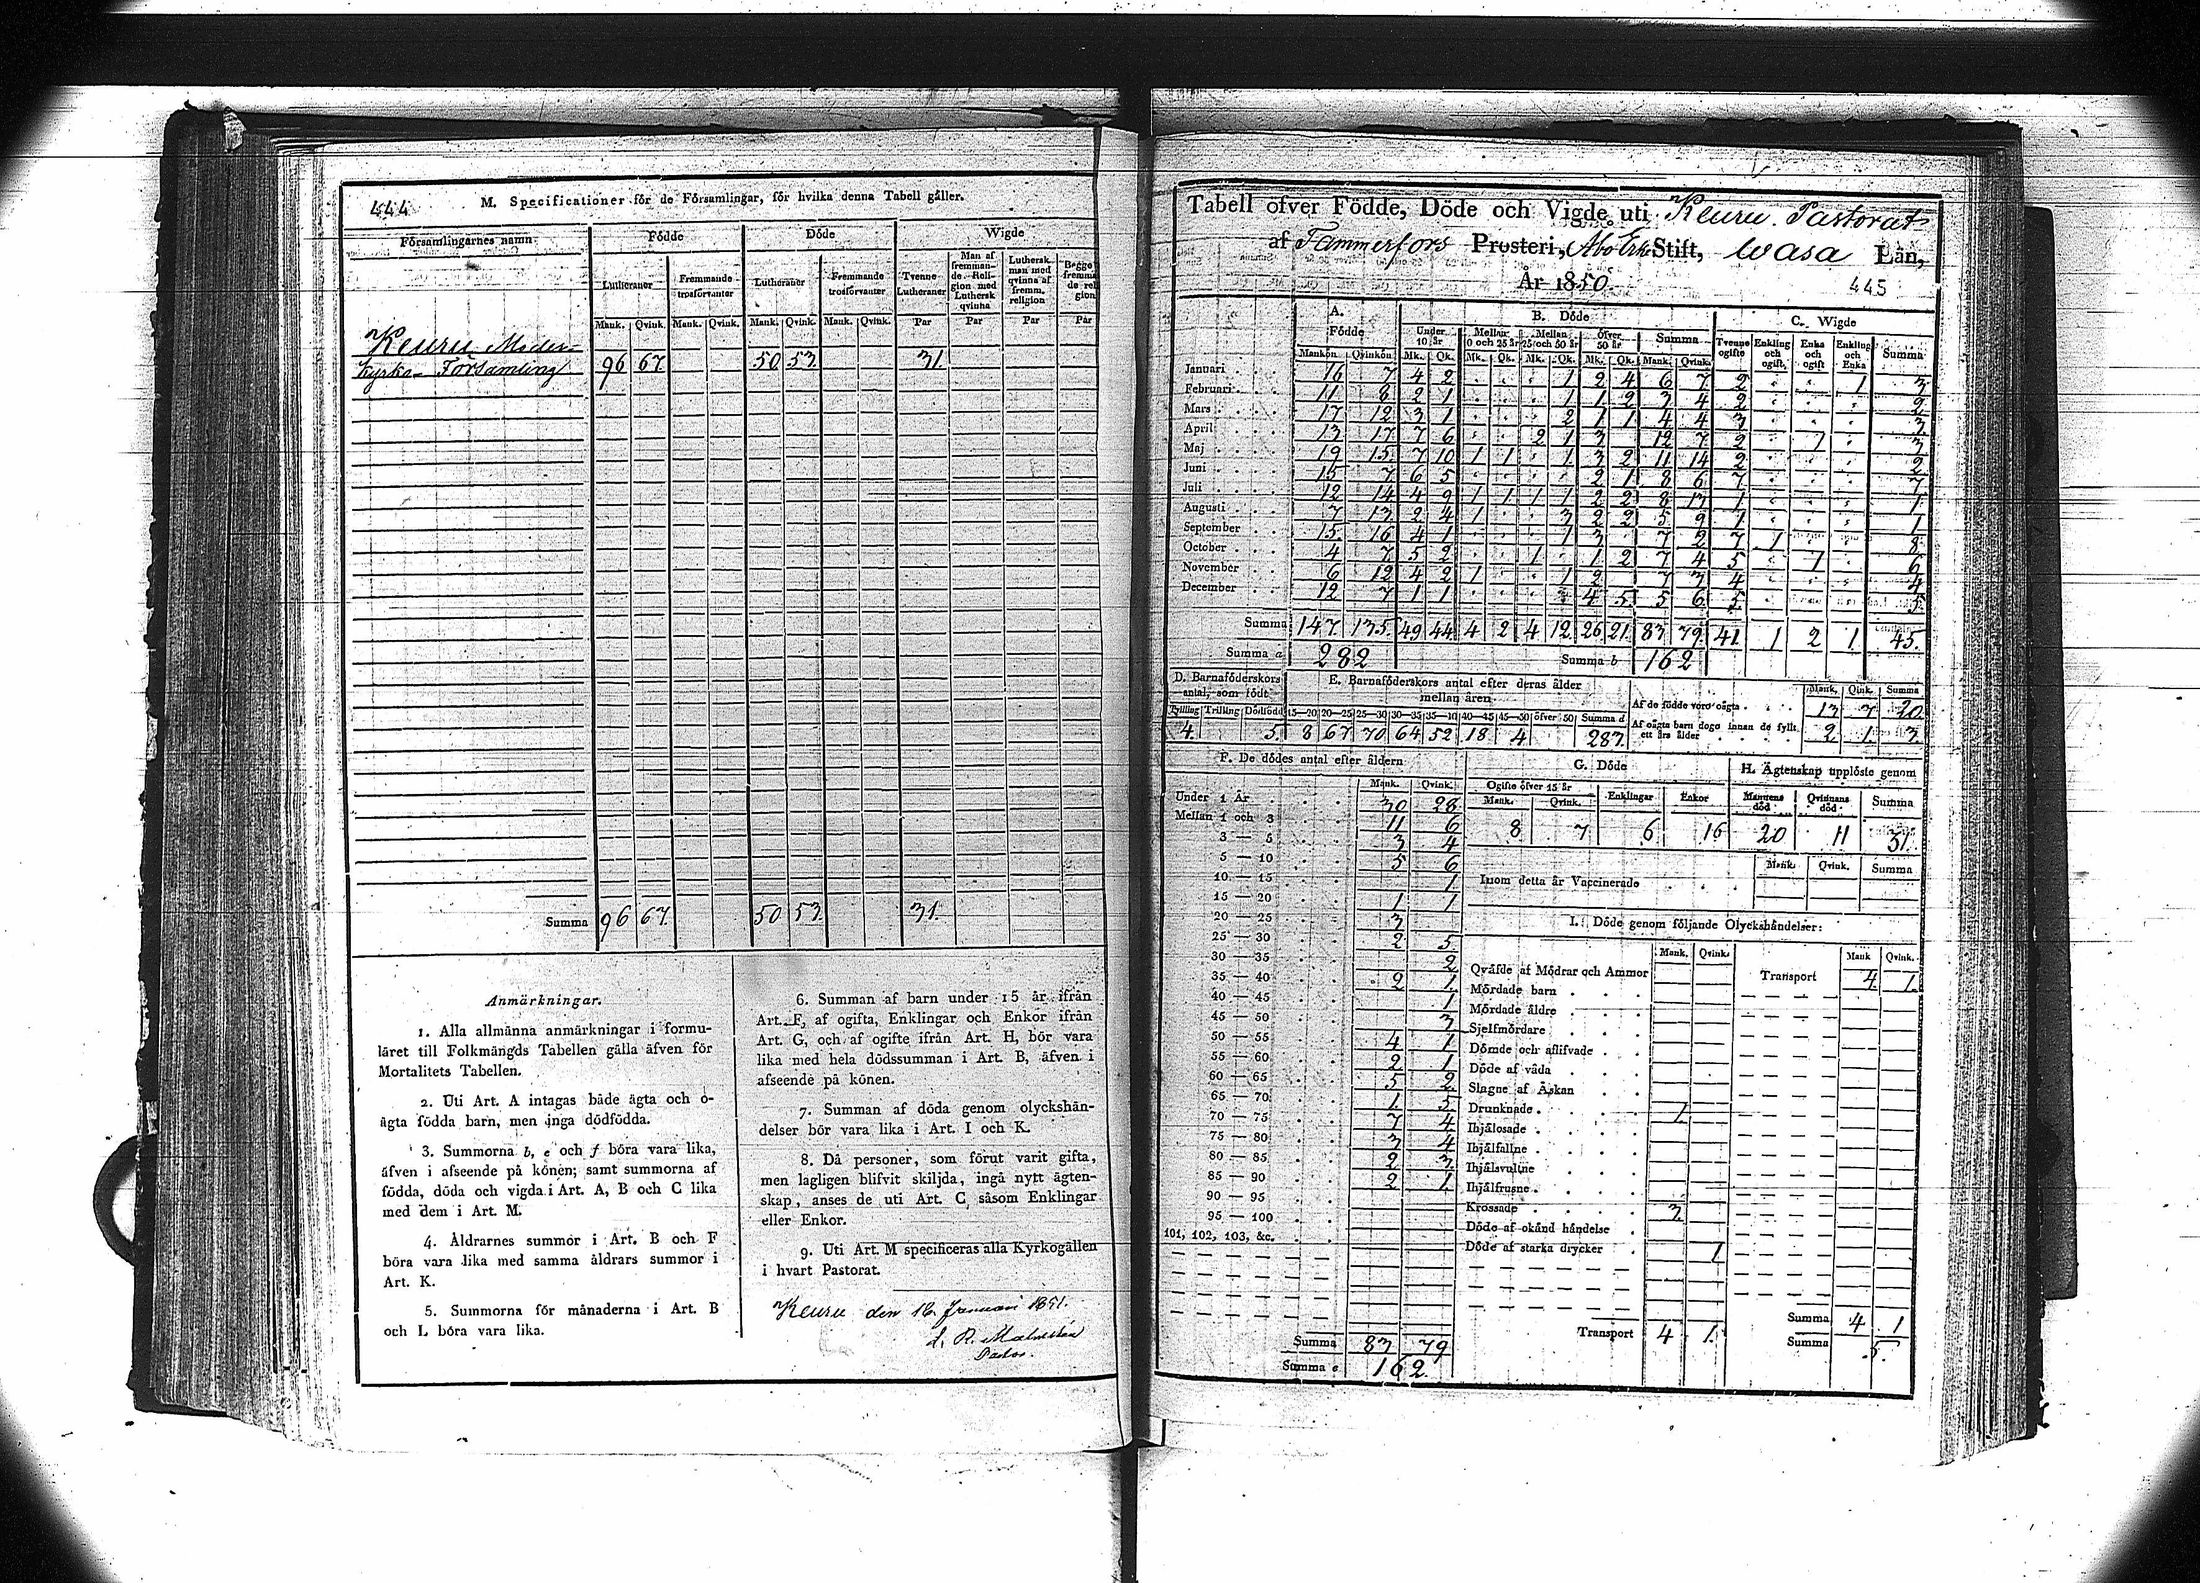 444
M. Specificationer för de Församlingar, för hvilka denna Tabell gäller.
Församlingarnes namn
Födde
Döde
Wigde
Lutheraner
Fremmande trosförvanter
Lutheraner
Fremmande trosförvanter
Tvenne Lutheraner
Man af fremmande Religion med Luthersk qvinna
Luthersk man med qvinna af fremm. religion
Mank. Qvink. Mank. Qvink. Mank. Qvink. Mank. Qvink. Par Par Par Par
Keuru Moder-
kyrko-Församling 96 67. 50 53. 31.
Summa 96 67. 50 53. 31.
Anmärkningar.
1. Alla allmänna anmärkningar i formu-
läret till Folkmängds Tabellen gälla äfven för
Mortalitets Tabellen.
2. Uti Art. A intagas både ägta och o-
ägta födda barn, men inga dödfödda.
3. Summorna b, e och f böra vara lika,
äfven i afseende på könen; samt summorna af
födda, döda och vigda i Art. A, B och C lika
med dem i Art. M.
4. Åldrarnes summor i Art. B och F
böra vara lika med samma åldrars summor i
Art. K.
5. Summorna för månaderna i Art. B
och L böra vara lika.
6. Summan af barn under 15 år ifrån
Art. F, af ogifta, Enklingar och Enkor ifrån
Art. G, och af ogifte ifrån Art. H, bör vara
lika med hela dödssumman i Art. B, äfven i
afseende på könen.
7. Summan af döda genom olyckshän-
delser bör vara lika i Art. I och K.
8. Då personer, som förut varit gifta,
men lagligen blifvit skiljda, ingå nytt ägten-
skap, anses de uti Art. C såsom Enklingar
eller Enkor.
9. Uti Art. M specificeras alla Kyrkogällen
i hvart Pastorat.
Keuru den 16 Januari 1851.
Pastor.
Tabell öfver Födde, Döde och Vigde uti Keuru Pastorat
af Tammerfors Prosteri, Åbo Erke Stift, Wasa Län,
År 1850.
445
A. Födde
B. Döde
C. Wigde
Under 10 år
Mellan 25 och 50 år
öfver 50 år
Summa
Tvenne ogifte
Enkling och ogift.
Enka och ogift
Enkling och Enka
Summa
Mankön Qvinkön Mk. Qk. Mk. Qk. Mk. Qk. Mk. Qk. Mank. Qvink.
Januari 16 7 4 2 1 2 4 6 7 2 1 3
Februari 11 8 2 1 1 1 2 3 4 2 2
Mars 17 12 3 1 2 1 1 4 4 3 3
April 13 17 7 6 2 1 3 12 7 2 1 3
Maj 19 15 7 10 1 1 1 3 2 11 14 2 2
Juni 15 7 6 5 2 1 8 6 7 7
Juli 12 14 4 9 1 1 1 1 2 2 8 13 1 1
Augusti 7 13 2 4 1 3 2 2 5 9 1 1
September 15 16 4 1 1 3 7 2 7 1 8
October 4 7 5 2 1 1 2 7 4 5 1 6
November 6 12 4 2 1 1 2 7 3 4 4
December 12 7 1 1 4 5 5 6 5 5
Summa 147. 135. 49 44 4 2 4 12 26 21 83 79 41 1 2 1 45.
Summa a 282
Summa b 162
D. Barnaföderskors antal, som födt
E. Barnaföderskors antal efter deras ålder mellan åren
Mank. Qvink. Summa
Tvilling Trilling Dödfödd 15—20 20—25 25—30 30—35 35—40 40—45 45—50 öfver 50 Summa d
4. 5. 8 67 70 64 52 18 4 283.
Af de födde voro oägta 13 7 20
Af oägta barn dogo innan de fyllt
ett års ålder 2 1 3
F. De dödes antal efter åldern
Mank. Qvink.
Under 1 År 30 28
Mellan 1 och 3 11 6
3 — 5 3 4
5 — 10 5 6
10 — 15 1
15 — 20 1 1
20 — 25 3
25 — 30 2 5
30 — 35 2
35 — 40 2 1
40 — 45 1
45 — 50 3
50 — 55 4 1
55 — 60 2 1
60 — 65 5 2
65 — 70 1 5
70 — 75 7 4
75 — 80 3 4
80 — 85 2 3
85 — 90 2 1
90 — 95
95 — 100
101, 102, 103, &c.
Summa 83 79
Summa e 162.
G. Döde
Ogifte öfver 15 år
Mank. Qvink. Enklingar Enkor
8 7 6 16
H. Ägtenskap upplöste genom
Mannens död Qvinnans död Summa
20 11 31
Mank. Qvink. Summa
Inom detta år Vaccinerade
I. Döde genom följande Olyckshändelser:
Mank. Qvink.
Qväfde af Mödrar och Ammor
Mördade barn
Mördade äldre
Sjelfmördare
Dömde och aflifvade
Döde af våda
Slagne af Åskan
Drunknade 1
Ihjälosade
Ihjälfallne
Ihjälsvultne
Ihjälfrusne
Krossade 3
Döde af okänd händelse
Döde af starka drycker 1
Transport 4 1.
Mank Qvink.
Transport 4 1.
Summa 4 1
Summa 5.